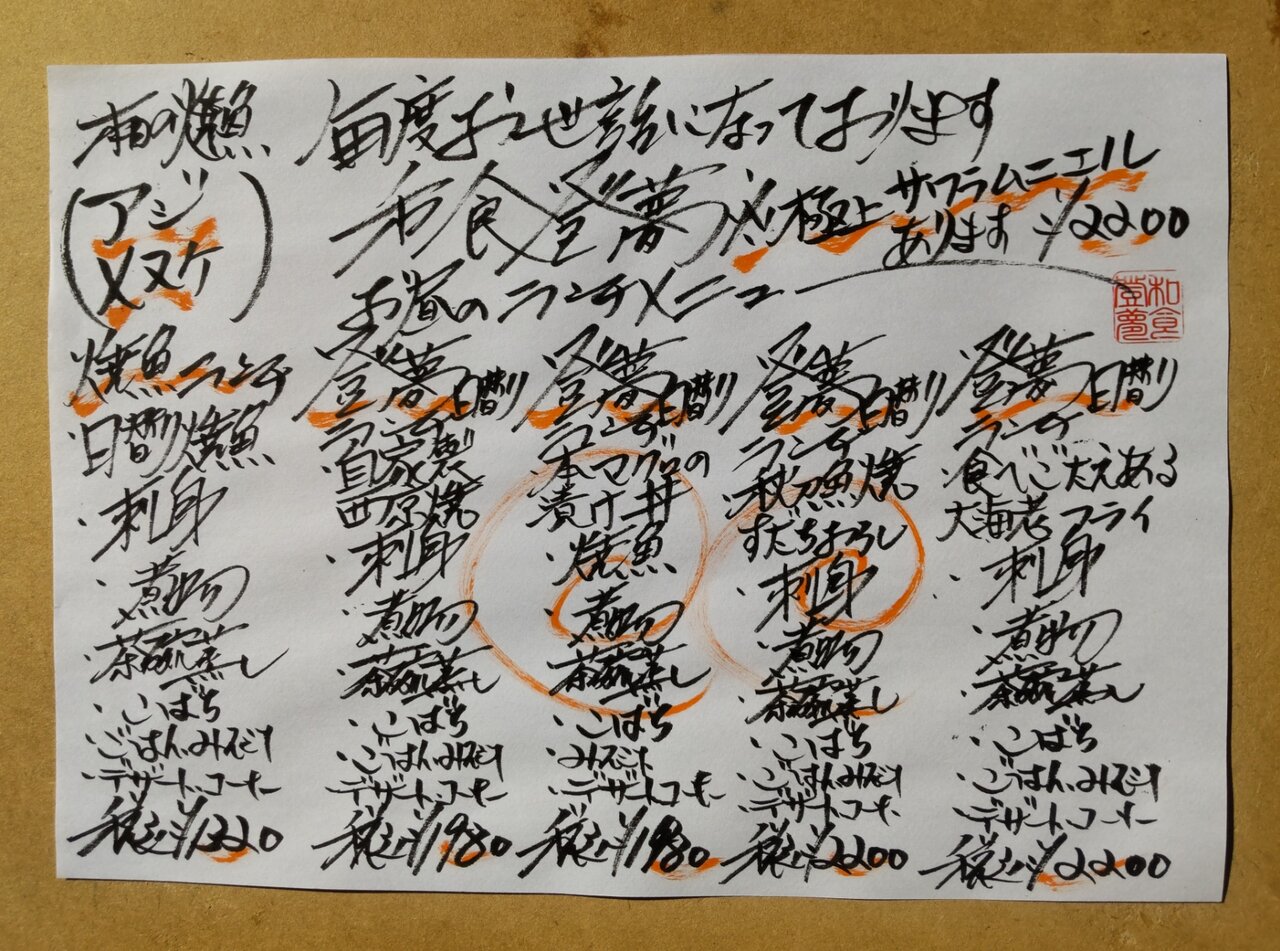 毎度お世話になっております
和食登夢
※極上サワラムニエル
あります ¥2200
お昼のランチメニュー
和食
登夢
本日の焼魚
(アジ
メヌケ)
焼魚ランチ
日替り焼魚
・刺身
・煮物
・茶碗蒸し
・こばち
・ごはん、みそ汁
・デザート、コーヒー
税込¥1320
登夢日替り
ランチ
自家製
西京焼
・刺身
・煮物
・茶碗蒸し
・こばち
・ごはん、みそ汁
・デザート、コーヒー
税込¥1980
登夢日替り
ランチ
・本マグロの
漬け丼
・焼魚
・煮物
・茶碗蒸し
・こばち
・みそ汁
・デザートコーヒー
税込¥1980
登夢日替り
ランチ
・秋刀魚焼
すだちおろし
・刺身
・煮物
・茶碗蒸し
・こばち
・ごはん、みそ汁
・デザート、コーヒー
税込¥2200
登夢日替り
ランチ
・食べごたえある
大海老フライ
・刺身
・煮物
・茶碗蒸し
・こばち
・ごはん、みそ汁
・デザート、コーヒー
税込¥2200